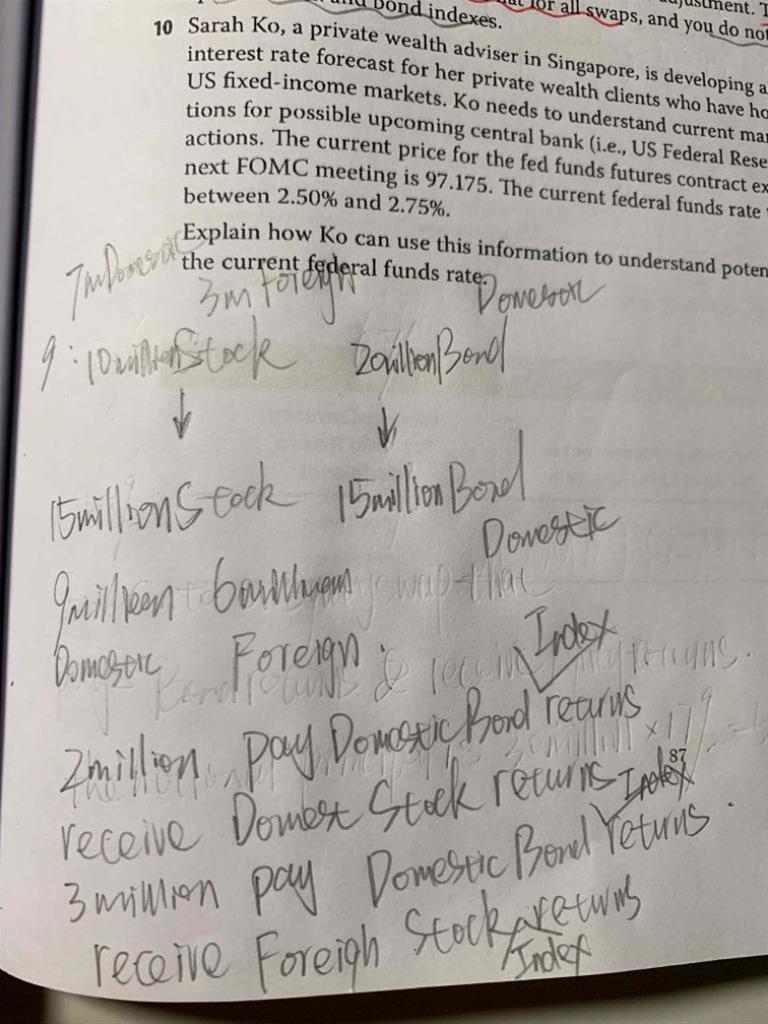 and bond indexes.
for all swaps, and you do not
10 Sarah Ko, a private wealth adviser in Singapore, is developing a
interest rate forecast for her private wealth clients who have ho
US fixed-income markets. Ko needs to understand current mar
tions for possible upcoming central bank (i.e., US Federal Rese
actions. The current price for the fed funds futures contract ex
next FOMC meeting is 97.175. The current federal funds rate
between 2.50% and 2.75%.
Explain how Ko can use this information to understand poten
the current federal funds rate.
7m Domestic 3m Foreign Domestic
9: 10 million Stock Bond
15 million Stock 15 million Bond
Domestic
Domestic Foreign
Index
2 million pay Domestic Bond returns
87
receive Domest Stock returns Index
3 million pay Domestic Bond returns
receive Foreigh Stock returns
Index